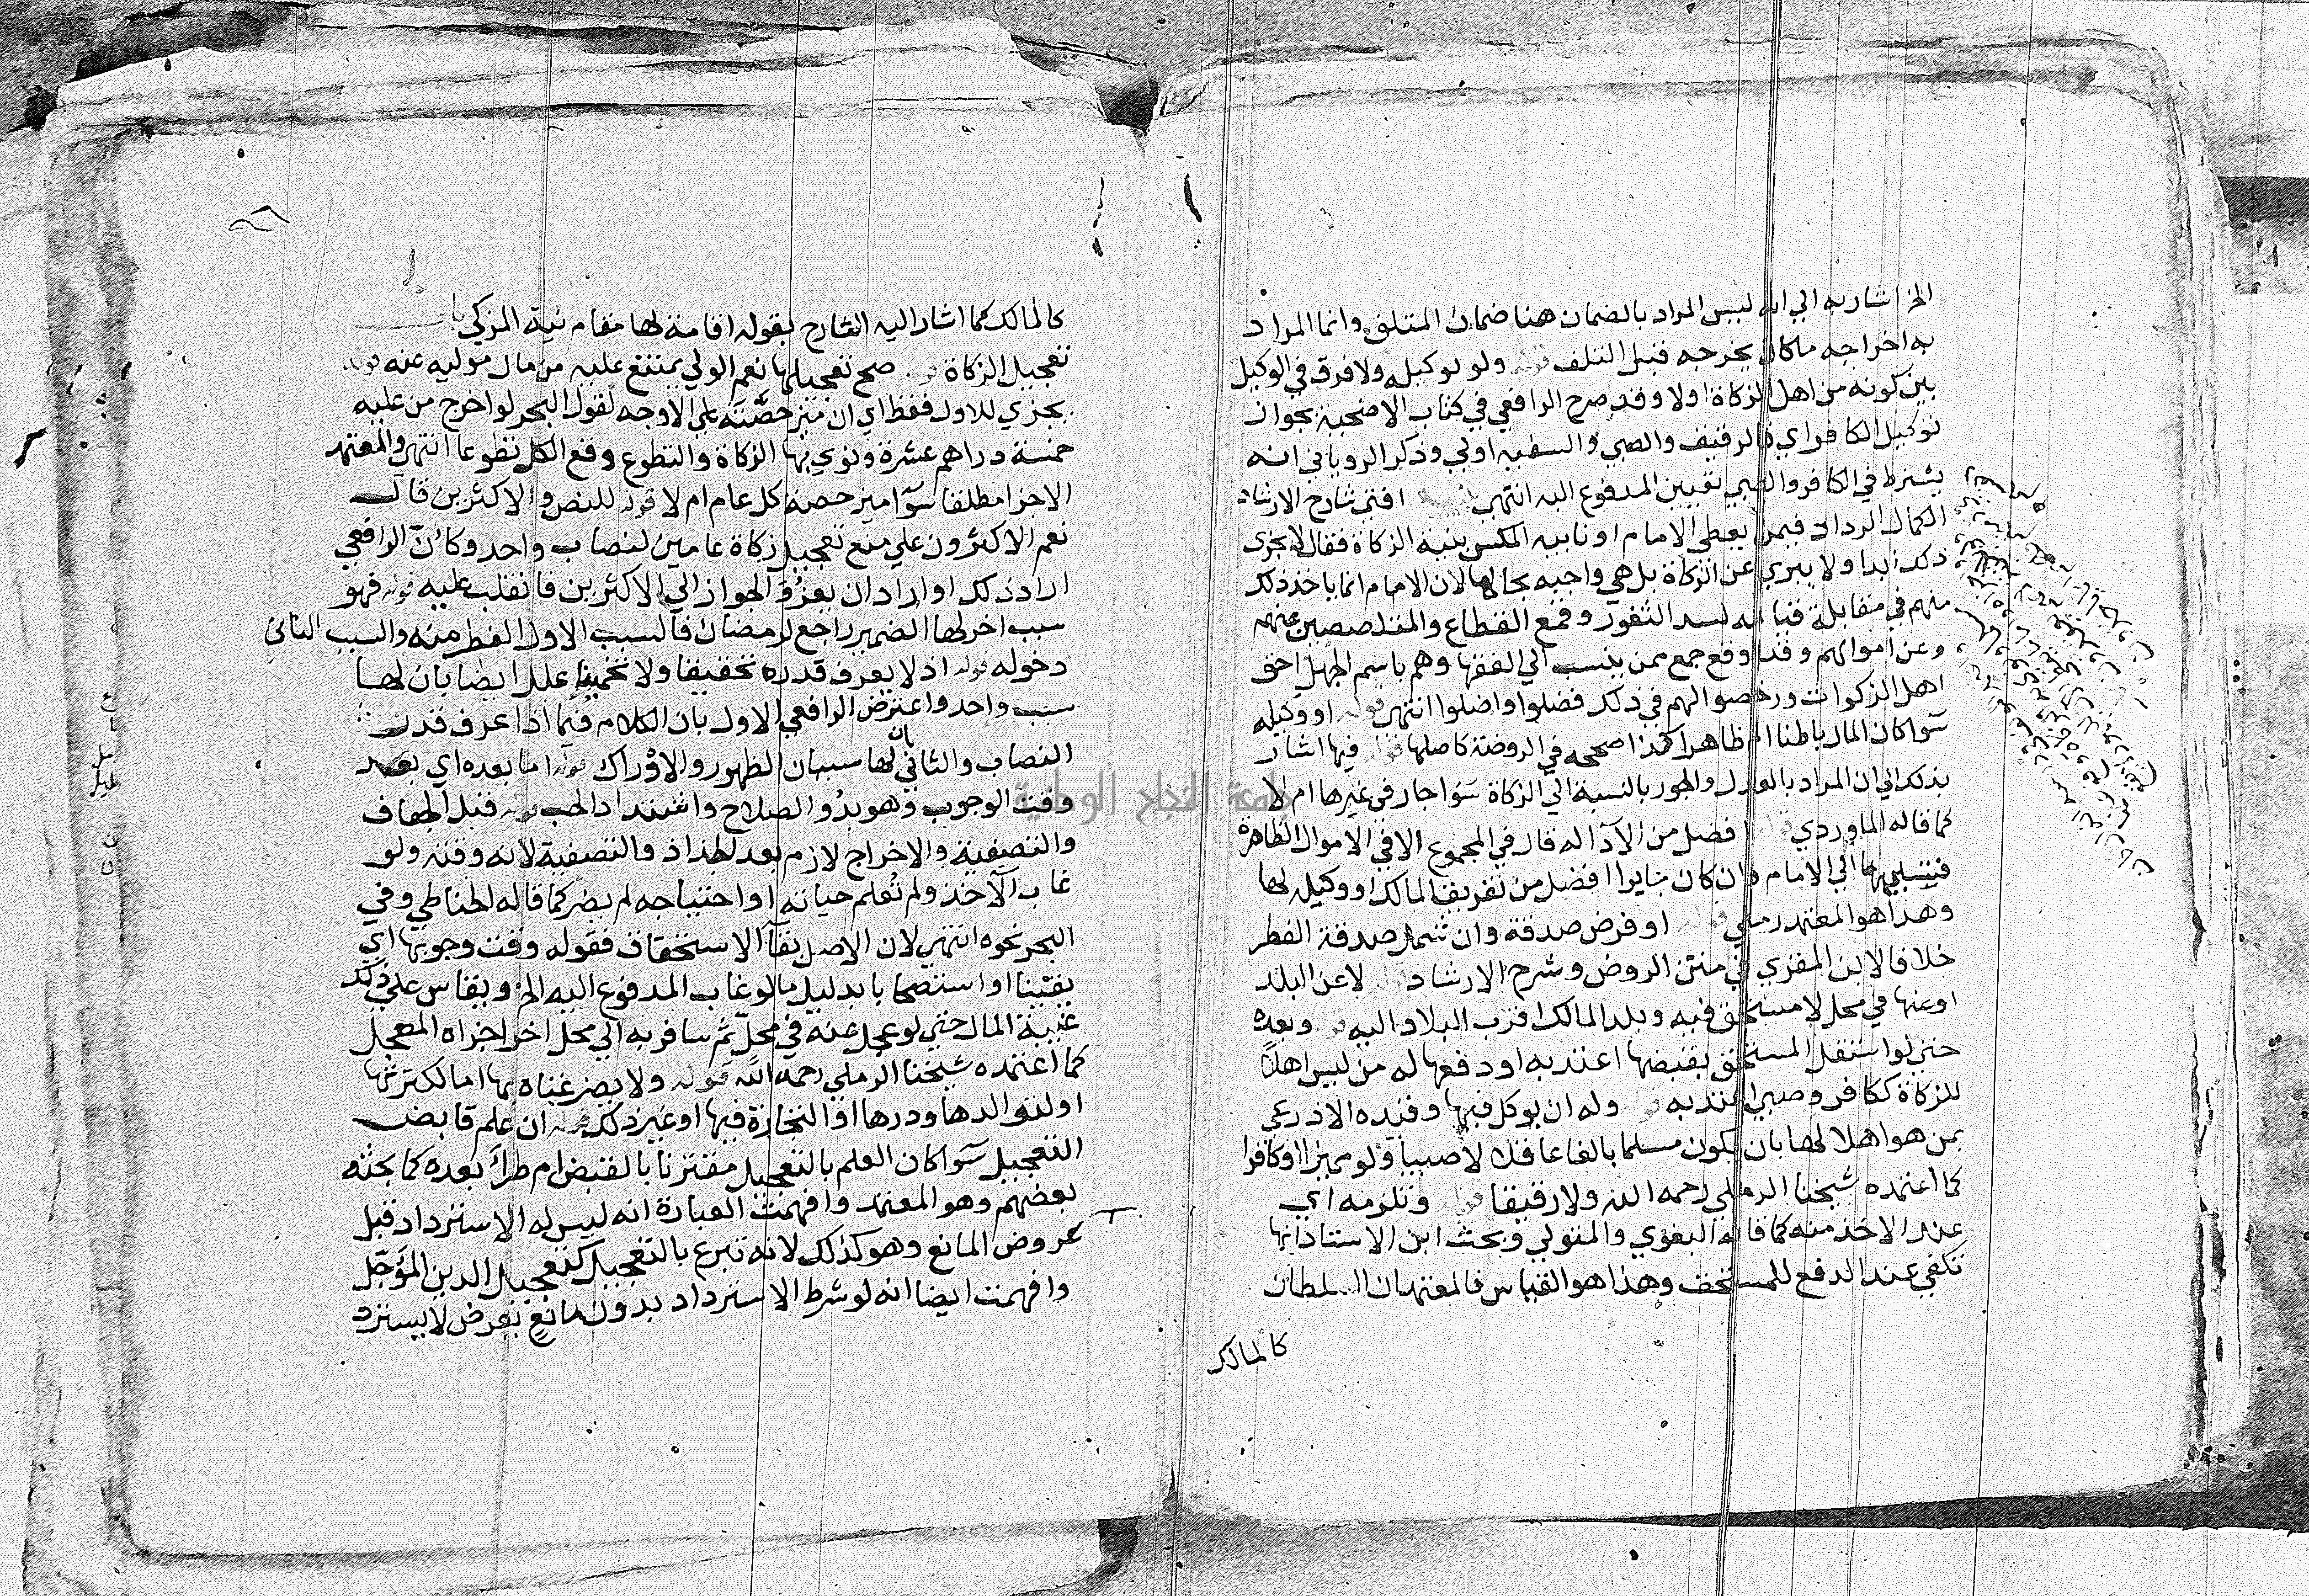 الخ اشار به الي انه ليس المراد بالضمان هنا ضمان المتلف وانما المراد
به اخراجه ما كان يخرجه قبل التلف قوله ولو بوكيله ولا فرق في الوكيل
بين كونه من اهل الزكاة اولا وقد صرح الرافعي في كتاب الاضحية بجواز
توكيل الكافر اي فالرقيق والصبي والسفيه اولي وذكر الروياني انه
يشترط في الكافر والصبي تعيين المدفوع اليه انتهي افتي شارح الارشاد
الكمال الرداد فيمن يعطي الامام او نايبه المكس بنية الزكاة فقال لا يجزي
ذلك ابدا ولا يبري عن الزكاة بل هي واجبه بحالها لان الامام انما ياخذ ذلك
منهم في مقابلة قيامه لسد الثغور وقمع القطاع والمتلصصين عنهم
وعن اموالهم وقد اوقع جمع ممن ينسب الي الفقها وهم باسم الجهل احق
اهل الزكوات ورخصوا لهم في ذلك فضلوا واضلوا انتهي قوله او وكيله
سوا كان المال باطنا ام ظاهرا كهذا صححه في الروضة كاصلها قوله فيها اشار
بذلك الي ان المراد بالعدل والجور بالنسبة الي الزكاة سوا جار في غيرها ام لا
كما قاله الماوردي قوله افضل من الآ اله قال في المجموع الا في الاموال الظاهرة
فتسليمها الي الامام وان كان جايرا افضل من تفريق المالك او وكيله لها
وهذا هو المعتمد رملي قوله او فرض صدقة وان تشمل صدقة الفطر
خلافا لابن المقري في متن الروض وشرح الارشاد قوله لا عن البلد
او عنها في محل لا مستحق فيه وبلد المالك اقرب البلاد اليه قوله وبعده
حتي لو استقل المستحق بقبضها اعتد به او دفعها له من ليس اهلا
للزكاة ككافر وصبي اعتد به قوله وله ان يوكل فيها وقيده الاذرعي
بمن هو اهلا لها بان يكون مسلما بالغا عاقلا لا صبيا ولو مميزا او كافرا
كما اعتمده شيخنا الرملي رحمه الله ولا رقيقا قوله وتلزمه اي
عند الاخذ منه كما قاله البغوي والمتولي وبحث ابن الاستاذ انها
تكفي عند الدفع للمستحق وهذا هو القياس فالمعتمد ان السلطان
كالمالك
كالمالك كما اشار اليه الشارح بقوله اقامة لها مقام نية المزكي باب
تعجيل الزكاة قوله صح تعجيلها نعم الولي يمتنع عليه من مال موليه عنه قوله
يجزي للاول فقط اي ان ميز حصته علي الاوجه لقول البحر لو اخرج من عليه
خمسة دراهم عشرة ونوي بها الزكاة والتطوع وقع الكل تطوعا انتهي والمعتمد
الاجزا مطلقا سوآ ميز حصة كل عام ام لا قوله للنص والاكثرين قال
نعم الاكثرون علي منع تعجيل زكاة عامين لنصاب واحد وكان الرافعي
اراد ذلك او اراد ان يعزو الجواز الي الاكثرين فانقلب عليه قوله فهو
سبب اخر لها الضمير راجع لرمضان فالسبب الاول الفطر منه والسبب الثاني
دخوله قوله اذ لا يعرف قدره تحقيقا ولا تخمينا علل ايضا بان لها
سبب واحد واعترض الرافعي الاول بان الكلام فيما اذا عرف قدر
النصاب والثاني بان لها سببان الظهور والادراك قوله اما بعده اي بعد
وقت الوجوب وهو بدو الصلاح واشتداد الحب قوله قبل الجفاف
والتصفية والاخراج لازم بعد الجذاذ والتصفية لانه وقته ولو
غاب الآخذ ولم تعلم حياته او احتياجه لم يضر كما قاله الحناطي وفي
البحر نحوه انتهي لان الاصل بقآ الاستحقاق فقوله وقت وجوبها اي
يقينا او استصحابا بدليل ما لو غاب المدفوع اليه الخ ويقاس علي ذلك
غيبة المال حتي لو عجل عنه في محل ثم سافر به الي محل اخر اجزاه المعجل
كما اعتمده شيخنا الرملي رحمه الله قوله ولا يضر غناه بها اما لكثرتها
او لتوالدها ودرها او التجارة فيها او غير ذلك قوله ان علم قابض
التعجيل سوآ كان العلم بالتعجيل مقترنا بالقبض ام طرأ بعده كما بحثه
بعضهم وهو المعتمد وافهمت العبارة انه ليس له الاسترداد قبل
عروض المانع وهو كذلك لانه تبرع بالتعجيل كتعجيل الدين المؤجل
وافهمت ايضا انه لو شرط الاسترداد بدون مانع يعرض لا يسترد
جامعة النجاح الوطنية